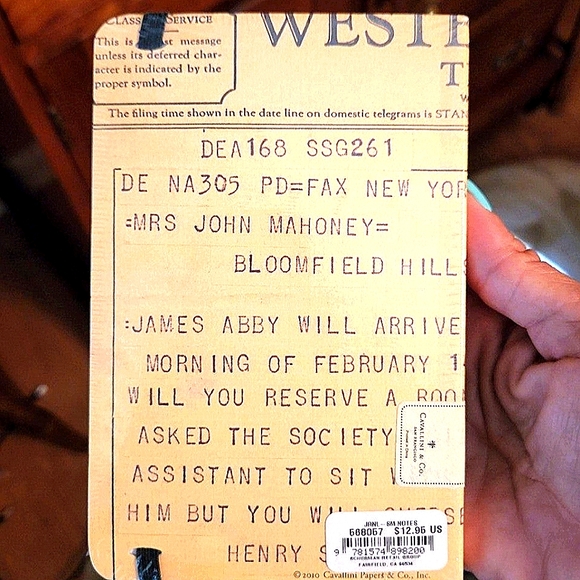 CLASS SERVICE
This is st message
unless its deferred char-
acter is indicated by the
proper symbol.
WESTE
T
The filing time shown in the date line on domestic telegrams is STAN
DEA168 SSG261
DE NA305 PD=FAX NEW YOR
=MRS JOHN MAHONEY=
BLOOMFIELD HILLS
:JAMES ABBY WILL ARRIVE
MORNING OF FEBRUARY 1
WILL YOU RESERVE A ROO
ASKED THE SOCIETY
ASSISTANT TO SIT W
HIM BUT YOU WILL
HENRY S
CAVALLINI & Co.
SAN FRANCISCO
Printed in China
JRNL- SM NOTES
568057 $12.95 US
781574 898200
FAIRFIELD, CA 94534
©2010 Cavallini Papers & Co., Inc.